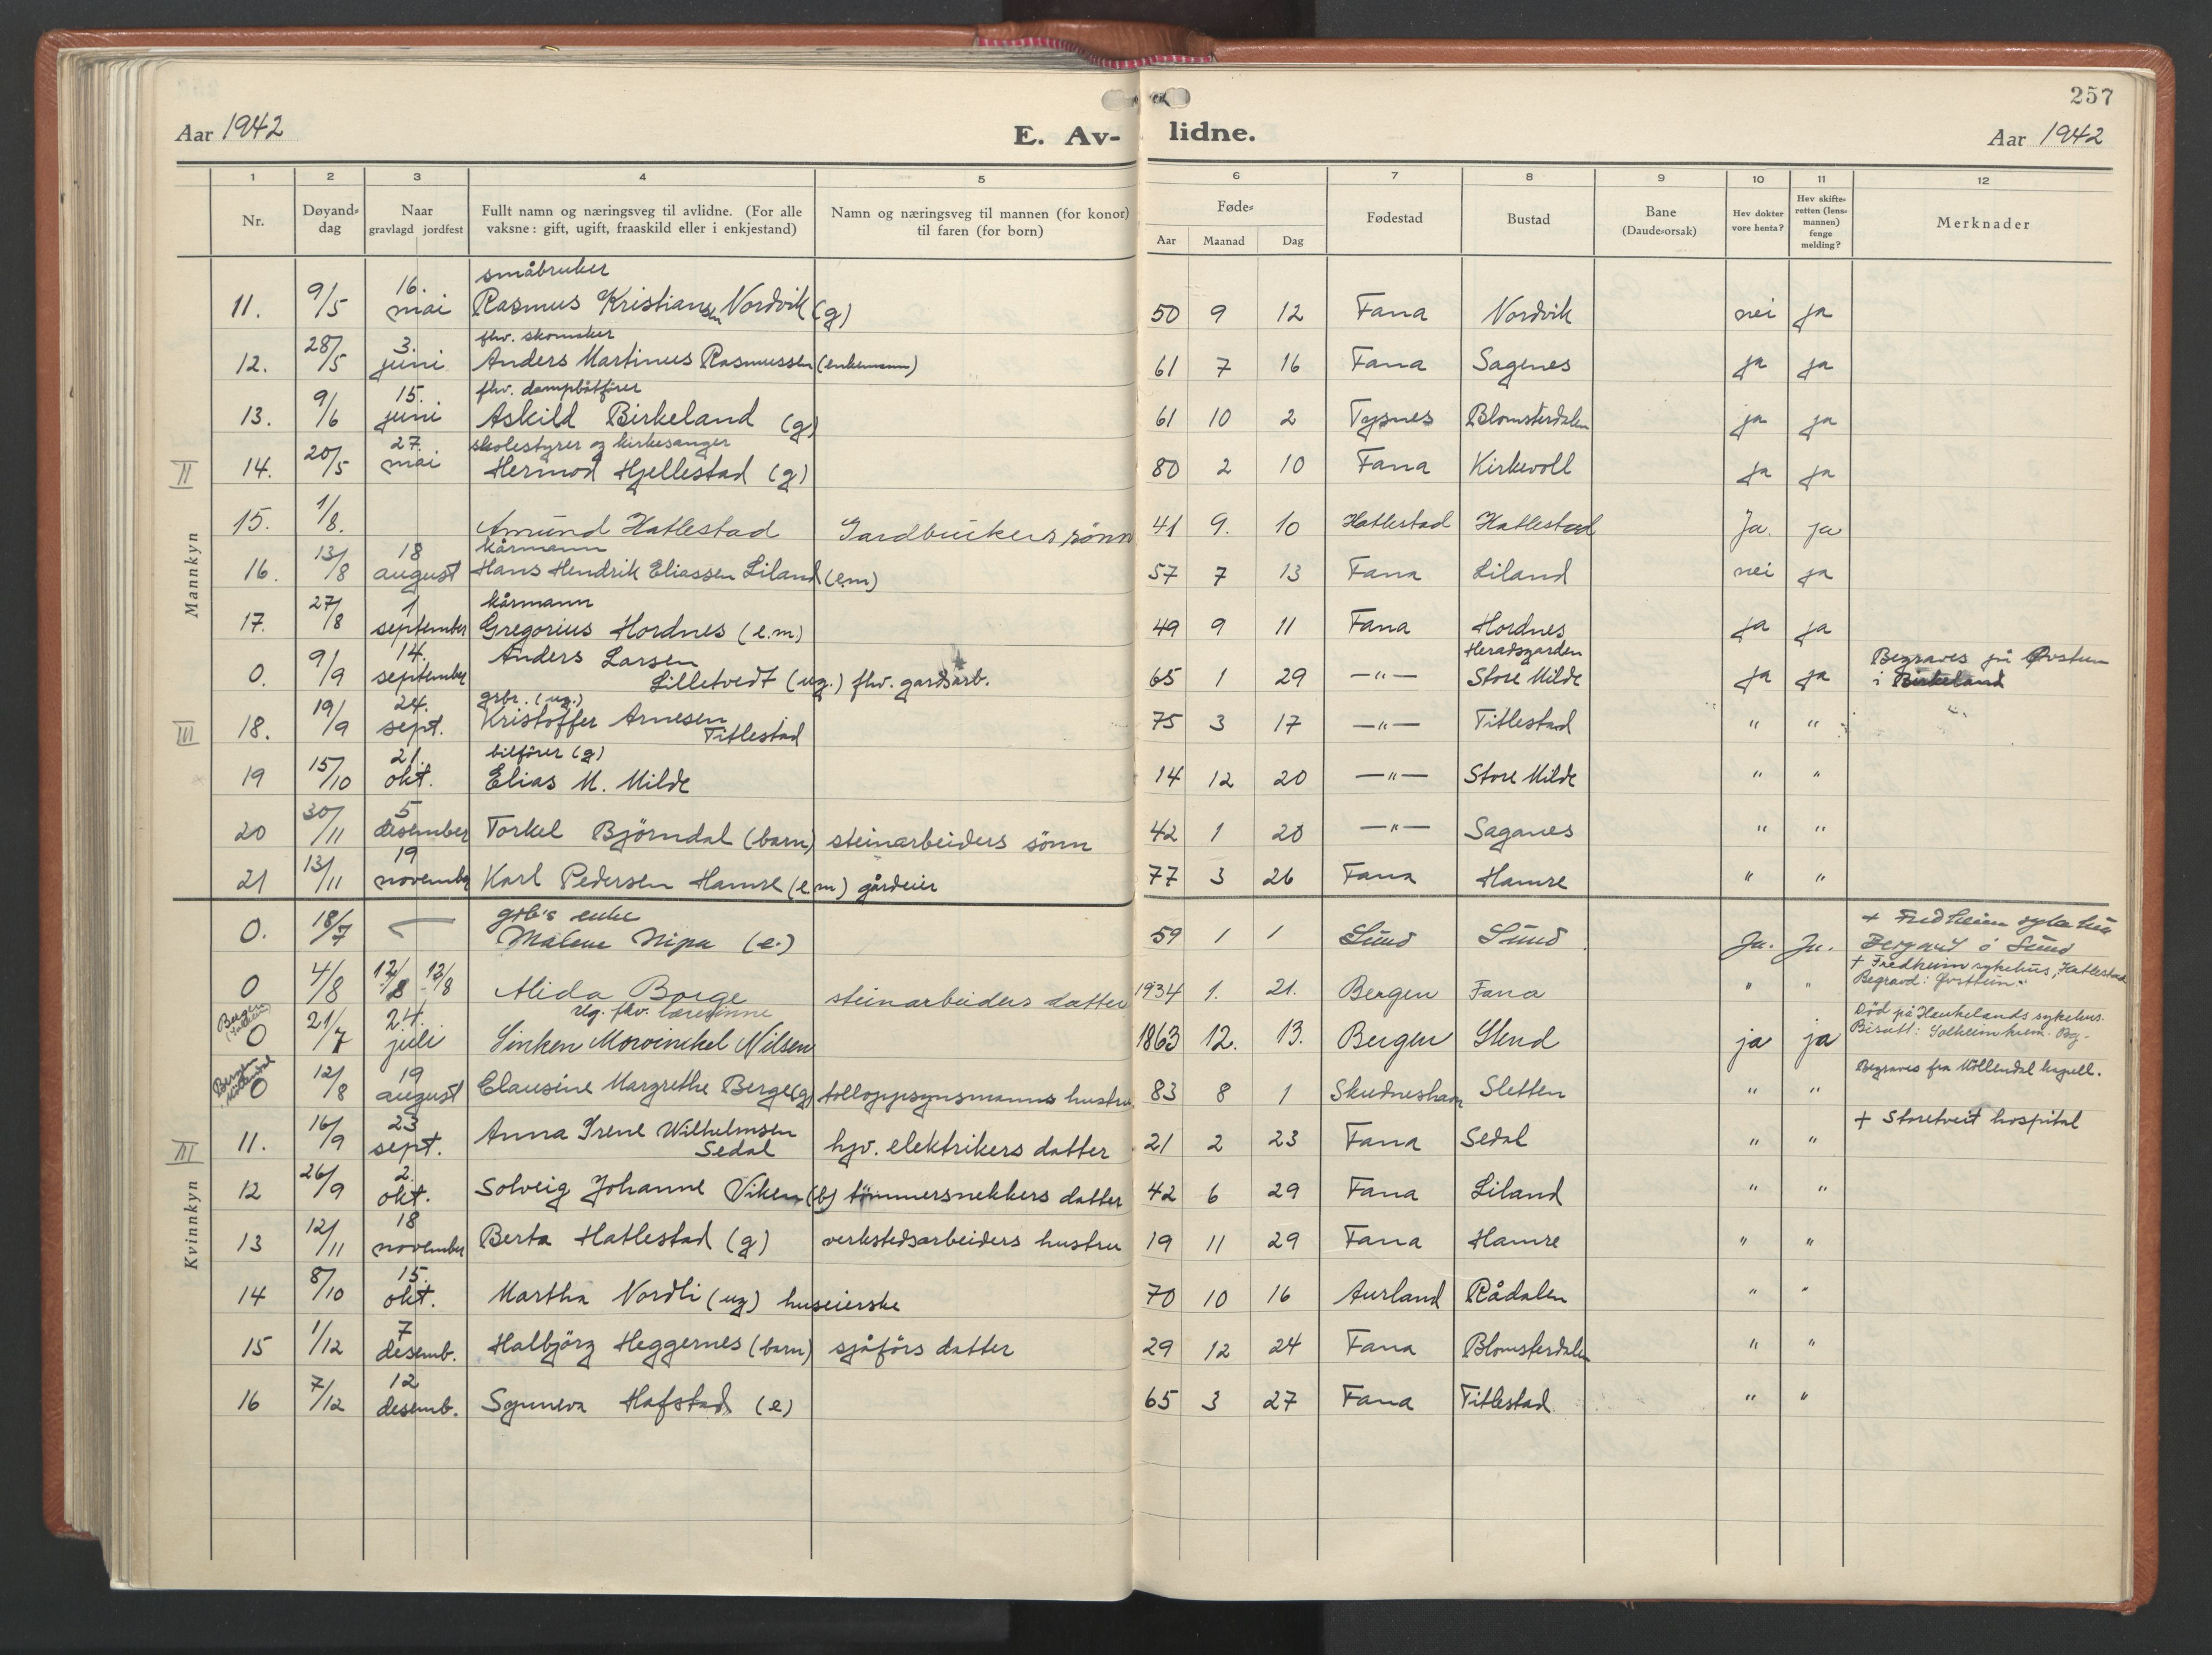 257
Aar 1942 E. Av- lidne. Aar 1942
1 2 3 4 5 6 7 8 9 10 11 12
Nr. Døyand-dag Naar gravlagd jordfest Fullt namn og næringsveg til avlidne. (For alle vaksne: gift, ugift, fraaskild eller i enkjestand) Namn og næringsveg til mannen (for konor) til faren (for born) Føde- Aar Maanad Dag Fødestad Bustad Bane (Daude-orsak) Hev dokter vore henta? Hev skifte-retten (lens-mannen) fenge melding? Merknader
Mannkyn
småbruker
11. 9/5 16. mai Rasmus Kristiansen Nordvik (g) 50 9 12 Fana Nordvik nei ja
fhv. skomaker
12. 28/5 3. juni Anders Martinus Rasmussen (enkemann) 61 7 16 Fana Sagenes ja ja
fhv. dampbåtfører
13. 9/6 15. juni Askild Birkeland (g) 61 10 2 Tysnes Blomsterdalen ja ja
skolestyrer og kirkesanger
II 14. 20/5 27. mai Hermod Hjellestad (g) 80 2 10 Fana Kirkevoll ja ja
15. 1/8. Amund Hatlestad Gardbrukers sønn 41 9. 10 Hatlestad Hatlestad Ja. ja
kårmann
16. 13/8 18 august Hans Hendrik Eliassen Liland (em) 57 7 13 Fana Liland nei ja
kårmann
17. 27/8 1 september Gregorius Hordnes (e.m.) 49 9 11 Fana Hordnes ja ja
0. 9/9 14. september Anders Larsen Lilletvedt (ug.) fhv. gardsarb. 65 1 29 —"— Heradsgarden Store Milde ja ja Begraves på Øvstun i Birkeland
grbr. (ug.)
III 18. 19/9 24. sept. Kristoffer Arnesen Titlestad 75 3 17 —"— Titlestad " "
bilfører (g)
19 15/10 21. okt. Elias M. Milde 14 12 20 —"— Store Milde " "
20 30/11 5 desember Torkel Björndal (barn) steinarbeiders sönn 42 1 20 —"— Saganes " "
21 13/11 19 november Karl Pedersen Hamre (e.m) gårdeier 77 3 26 Fana Hamre " "
Kvinnkyn
grb's enke
0. 18/7 — Malene Nipa (e.) 59 1 1 Sund Sund Ja. Ja. + Fredheim sykehus Begravd i Sund
0 4/8 12/8 12/8 Alida Borge steinarbeiders datter 1934 1. 21. Bergen Fana " " + Fredheim sykehus, Hatlestad Begravd: Øvsttun.
ug. fhv. lærerinne
Bergen 0 21/7 24. juli Sinken Mowinckel Nilsen 1863 12. 13. Bergen Stend ja ja Död på Haukelands sykehus. Bisatt: Solheim krem. Bg.
Bergen Möllendal 0 12/8 19 august Clausine Margrethe Berge (g) tolloppsynsmanns hustru 83 8 1 Skudneshavn Sletten " " Begraves fra Möllendal kapell.
III 11. 16/9 23 sept. Anna Irene Wilhelmsen Sedal hjv. elektrikers datter 21 2 23 Fana Sedal " " + Storetveit hospital
12 26/9 2. okt. Solveig Johanne Viken (b) tømmersnekkers datter 42 6 29 Fana Liland " "
13 12/11 18 november Berta Hatlestad (g) verkstedsarbeiders hustru 19 11 29 Fana Hamre " "
14 8/10 15. okt. Martha Nordli (ug) huseierske 70 10 16 Aurland Rådalen " "
15 1/12 7 desemb. Halbjörg Heggernes (barn) sjåförs datter 29 12 24 Fana Blomsterdalen " "
16 7/12 12 desemb. Synneva Hafstad (e) 65 3 27 Fana Titlestad " "